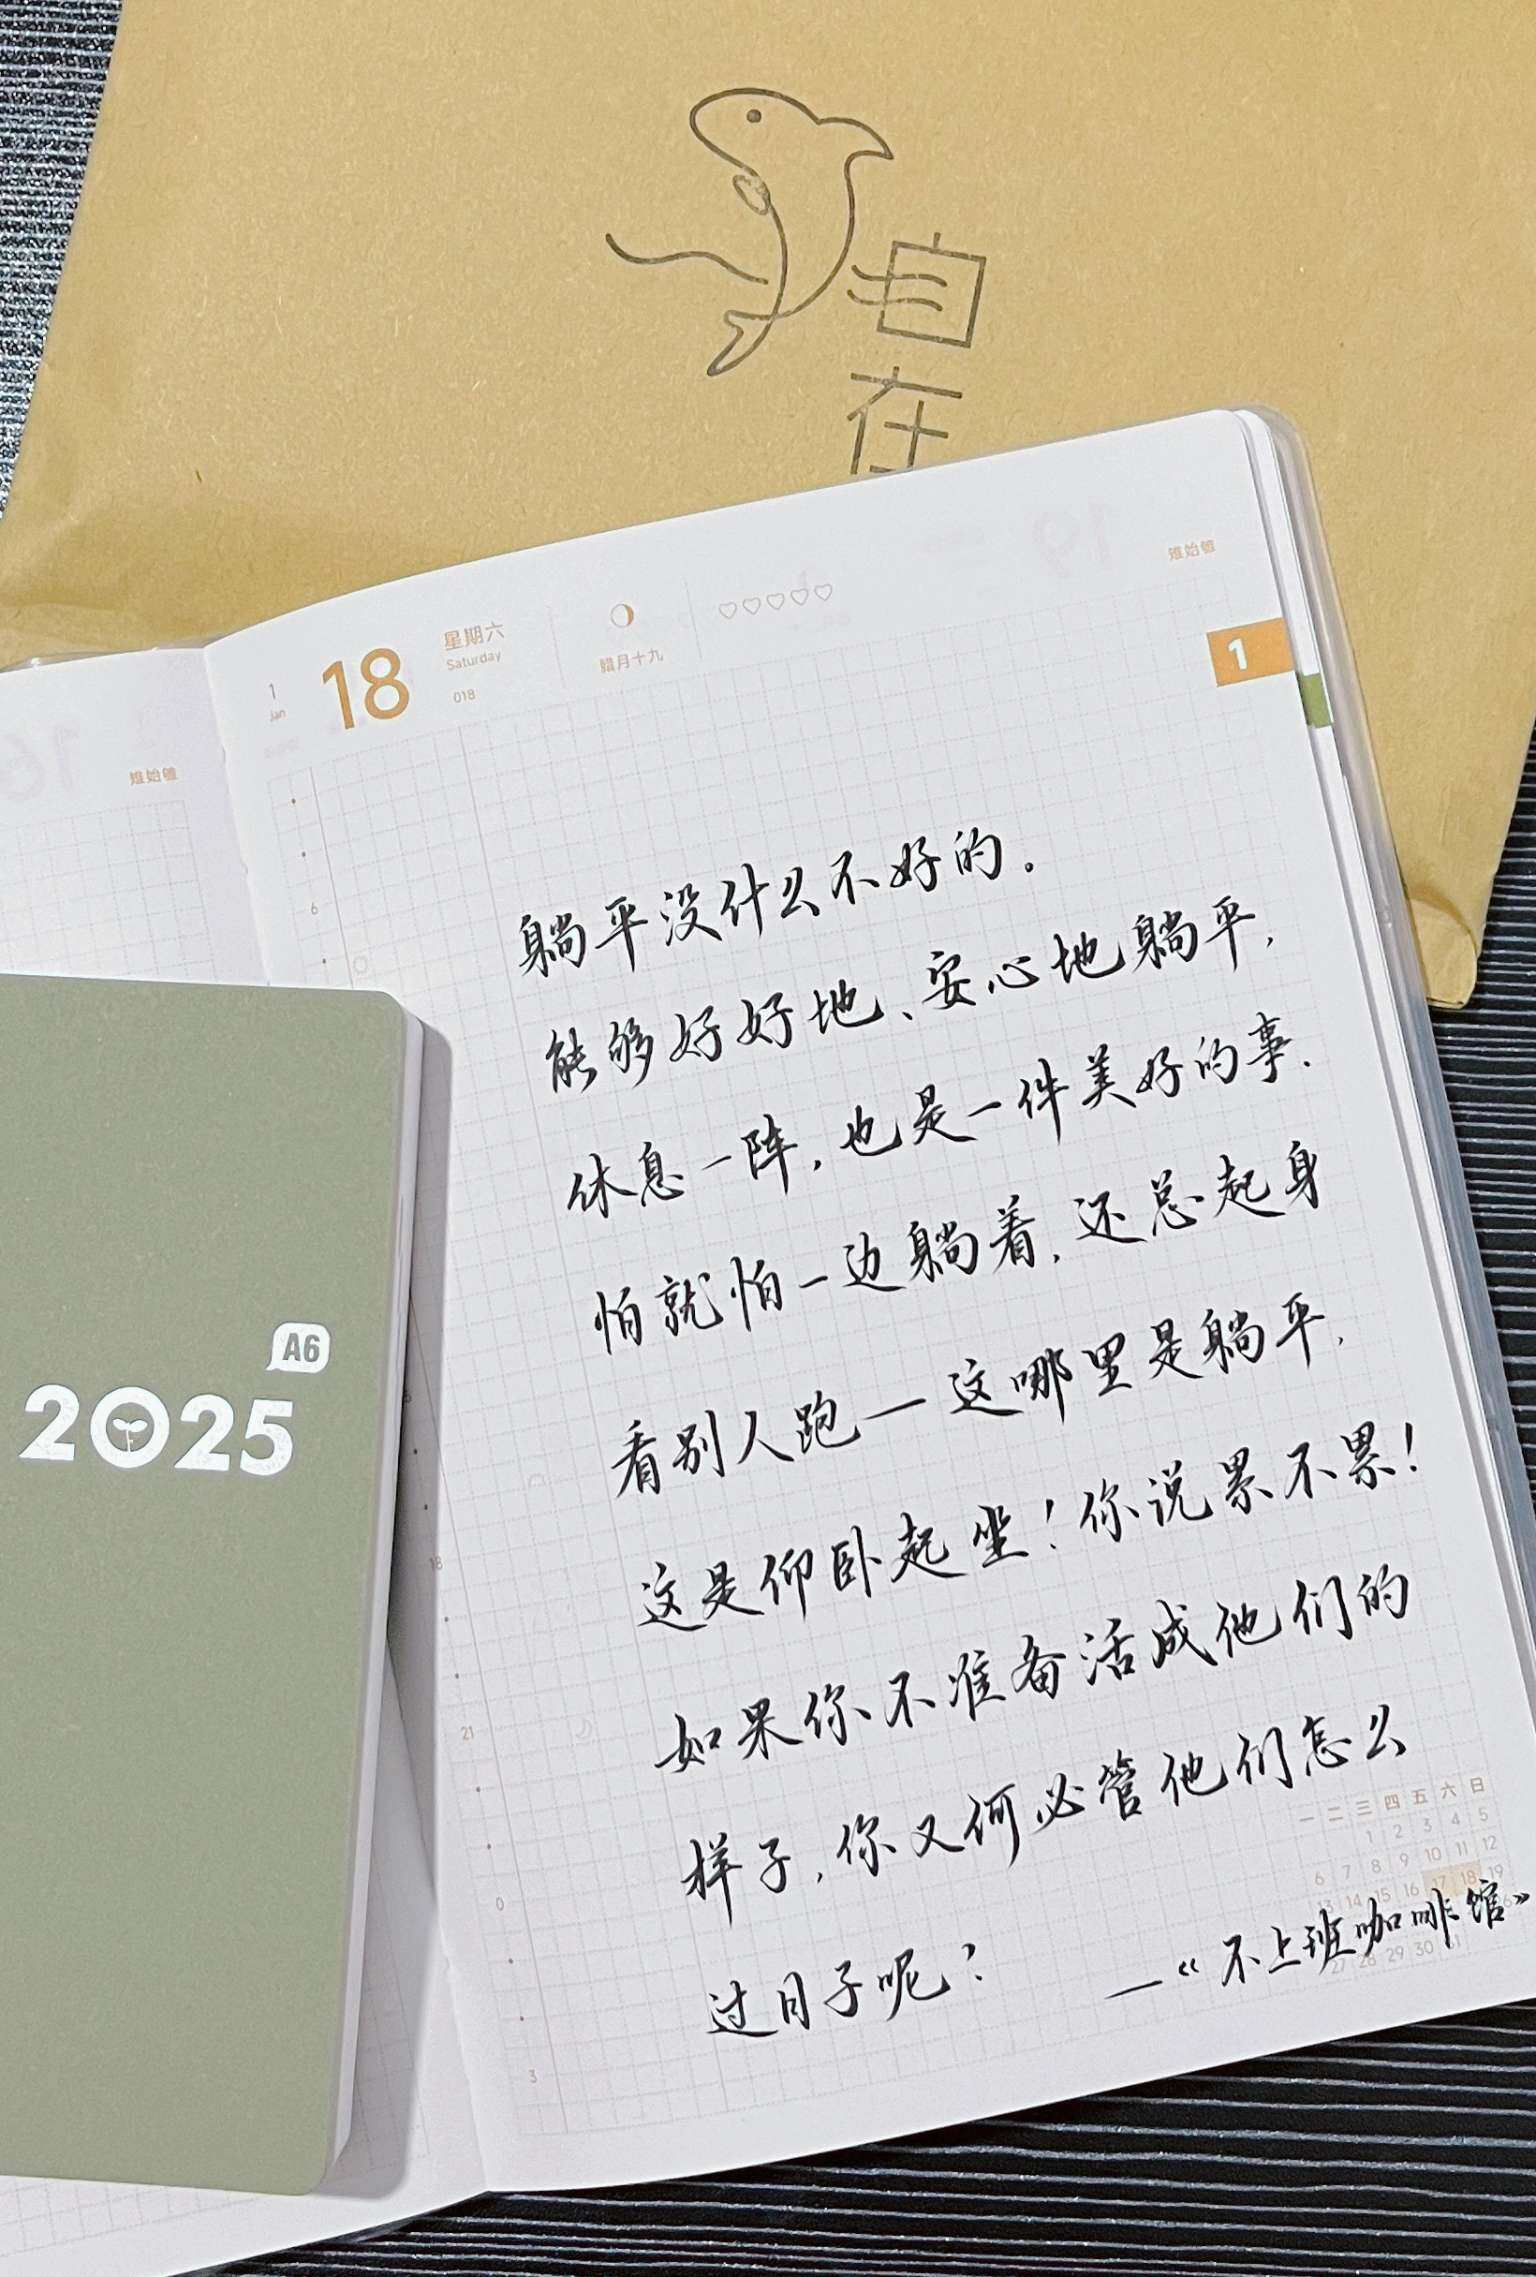 自
在
1
Jan
18
星期六
Saturday
018
臘月十九
雉始雊
1
雉始雊
躺平没什么不好的。
能够好好地、安心地躺平,
休息一阵,也是一件美好的事.
怕就怕一边躺着,还总起身
看别人跑—这哪里是躺平,
这是仰卧起坐!你说累不累!
如果你不准备活成他们的
样子,你又何必管他们怎么
过日子呢?
—《不上班咖啡馆》
6
18
21
0
3
一 二 三 四 五 六 日
1 2 3 4 5
6 7 8 9 10 11 12
13 14 15 16 17 18 19
27 28 29 30 31
A6
2025